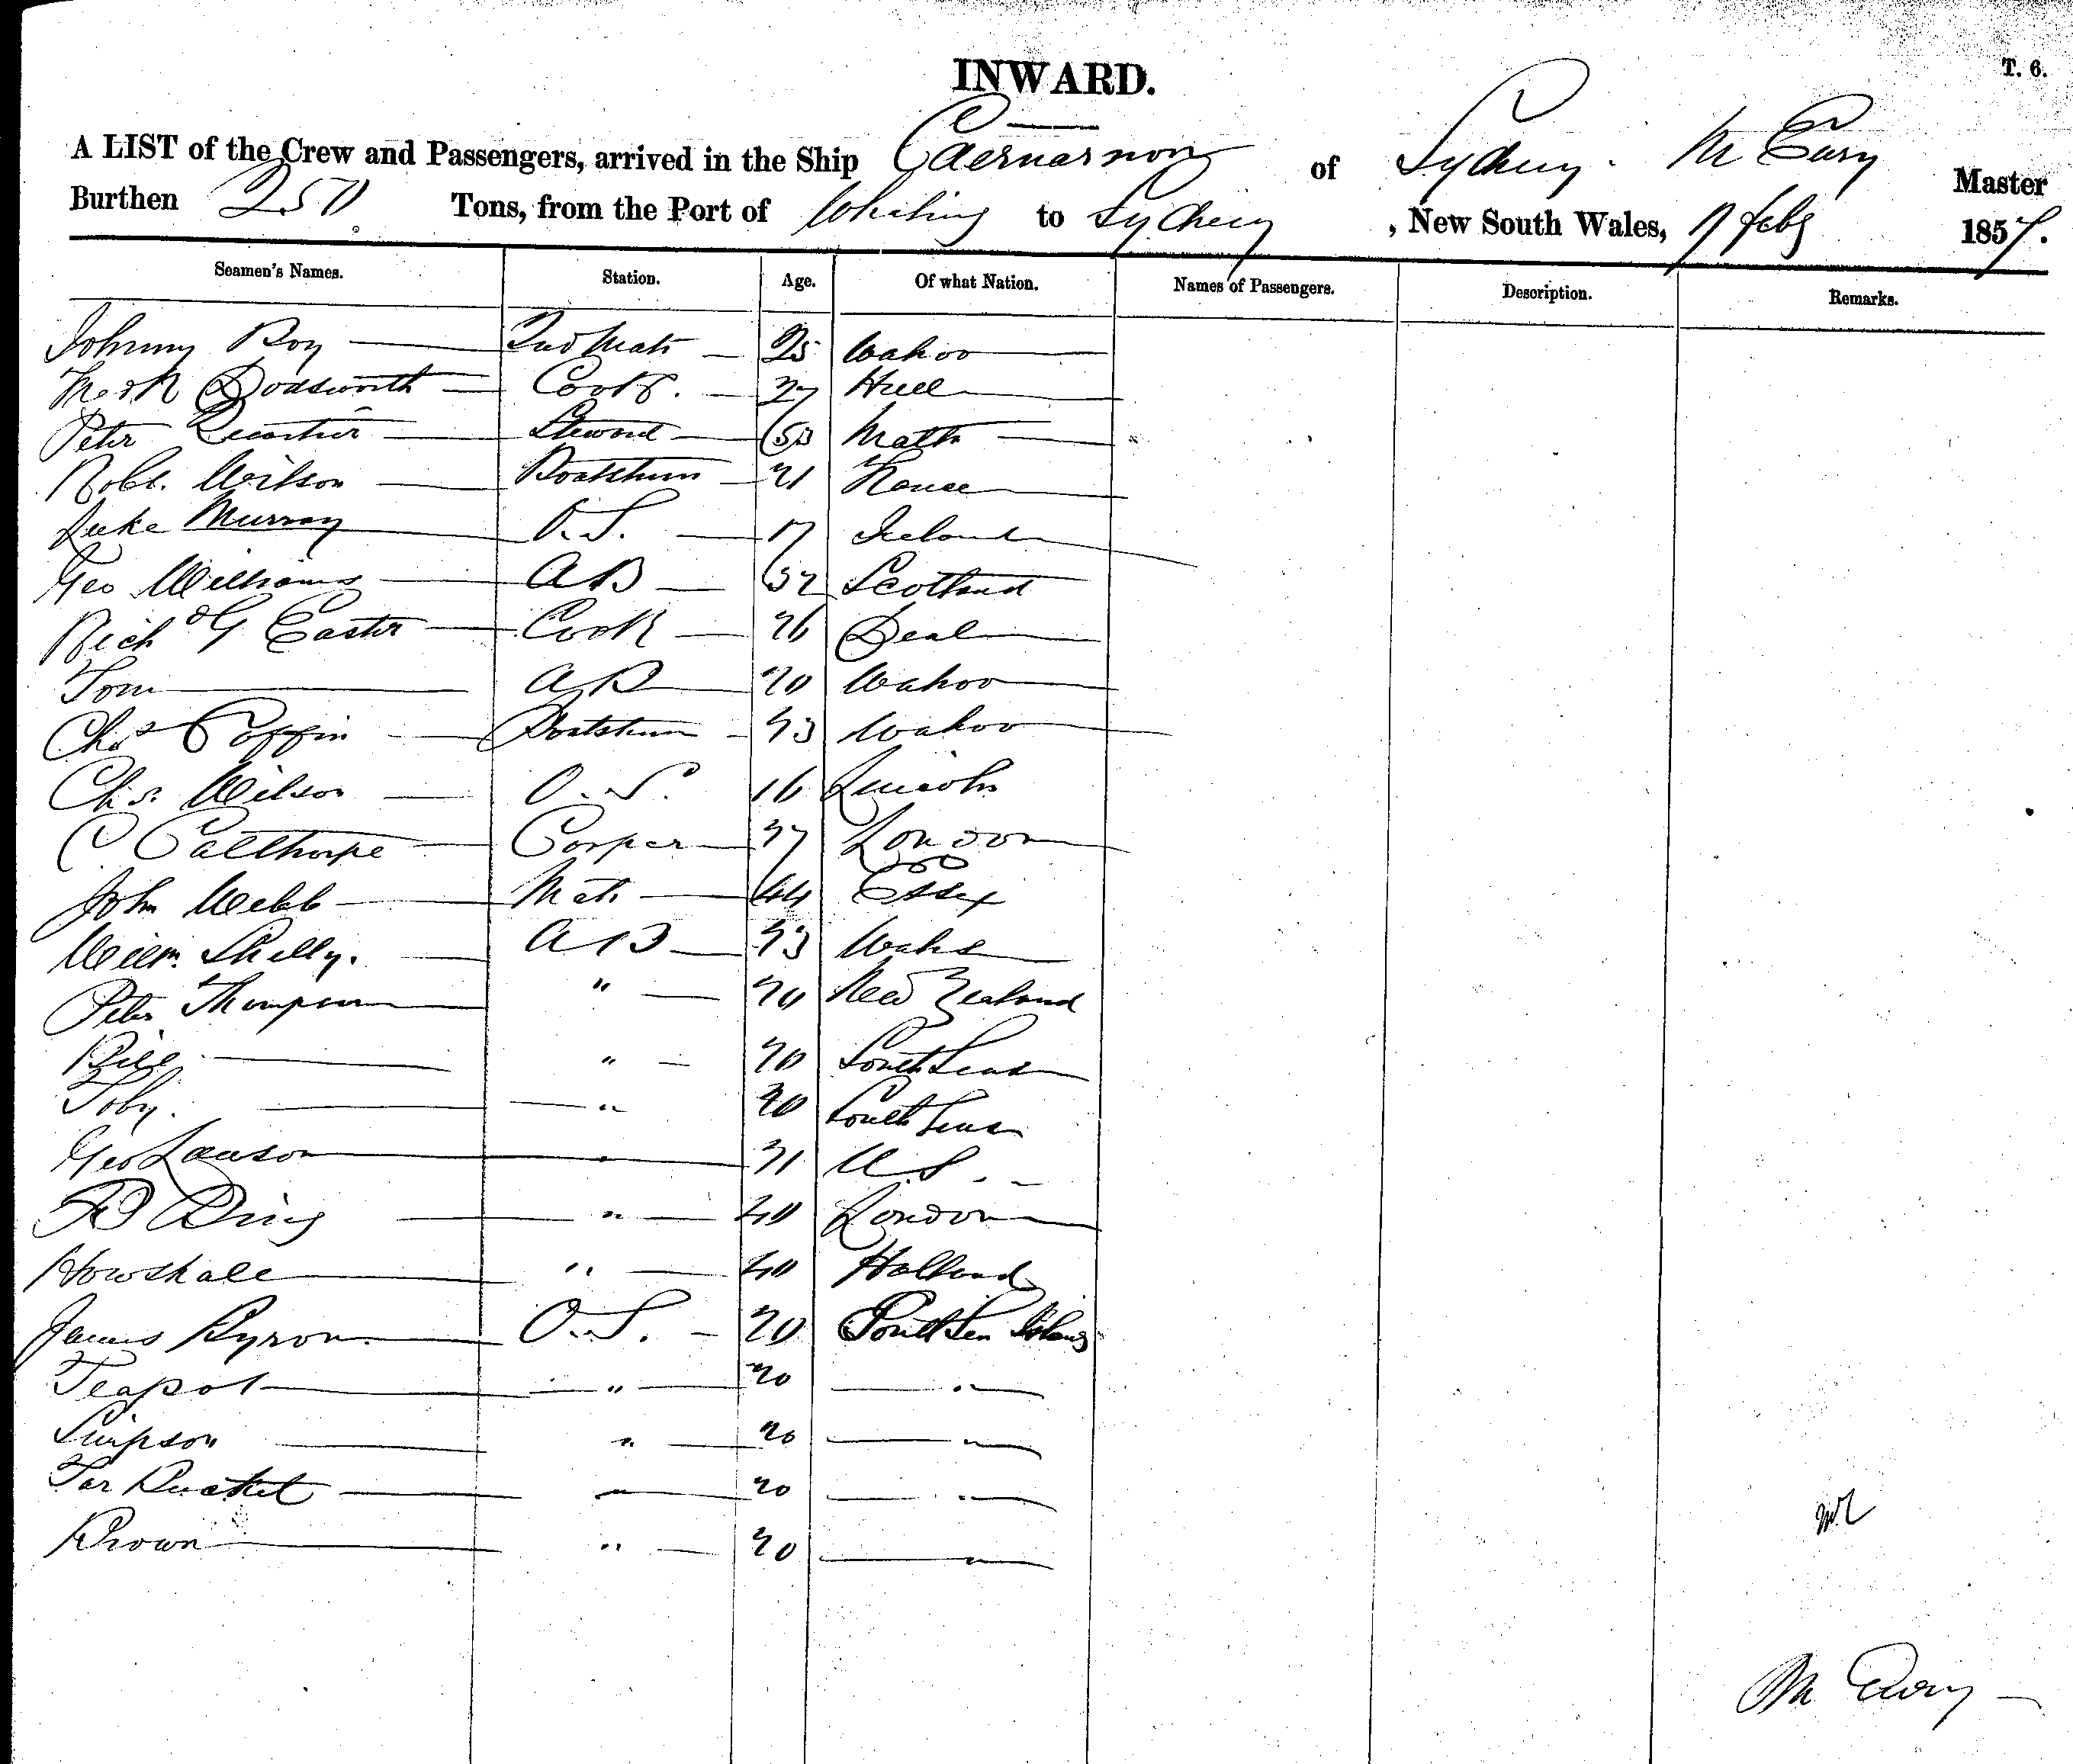 INWARD.
T. 6.
A LIST of the Crew and Passengers, arrived in the Ship Caernarvon of Sydney. M Eury Master
Burthen 250 Tons, from the Port of Whaling to Sydney, New South Wales, 7 Feby 1857.
Seamen's Names. Station. Age. Of what Nation. Names of Passengers. Description. Remarks.
Johnny Roy 2nd Mate 25 Wahoo
Dodsworth Cook. 27 Hull
Peter Steward 50 Malta
Robt. Wilson Boatsteerer 21
Luke Murray O.S. 17 Ireland
Geo Williams AB 52 Scotland
Richd G Easter Cook 26 Deal
Tom AB 20 Wahoo
Chas Coffin Boatsteerer 23 Wahoo
Chs. Wilson O.S. 16 Lincoln
C Calthorpe Cooper 27 London
John Webb Mate 44 Essex
Willm. Shelly. AB 23
Peter Thompson " 20 New Zealand
Bill " 20 South Seas
Toby. " 20 South Seas
Geo Lawson " 21 U.S.
" 40 London
Howskall " 40 Holland
James Byron. O.S. 20 South Sea Islands
Teapot " 20 "
Simpson " 20 "
Tar Bucket " 20 "
Brown " 20 "